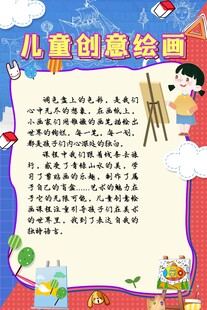 儿童创意绘画
调色盘上的色彩，是我们
心中无尽的想象，在画纸上，
小画家们用稚嫩的画笔描绘出
世界的绚烂，每一笔，每一划，
都是孩子们内心深处的独白。
课程中我们跟着线条去旅
行，感受了青绿山水的美，学
习了剪贴画的乐趣，制作了属
于自己的盲盒……艺术的魅力在
于它的无限可能，儿童创意绘
画课程注重引导孩子们在美术
的世界里，找到了表达自我的
独特语言。